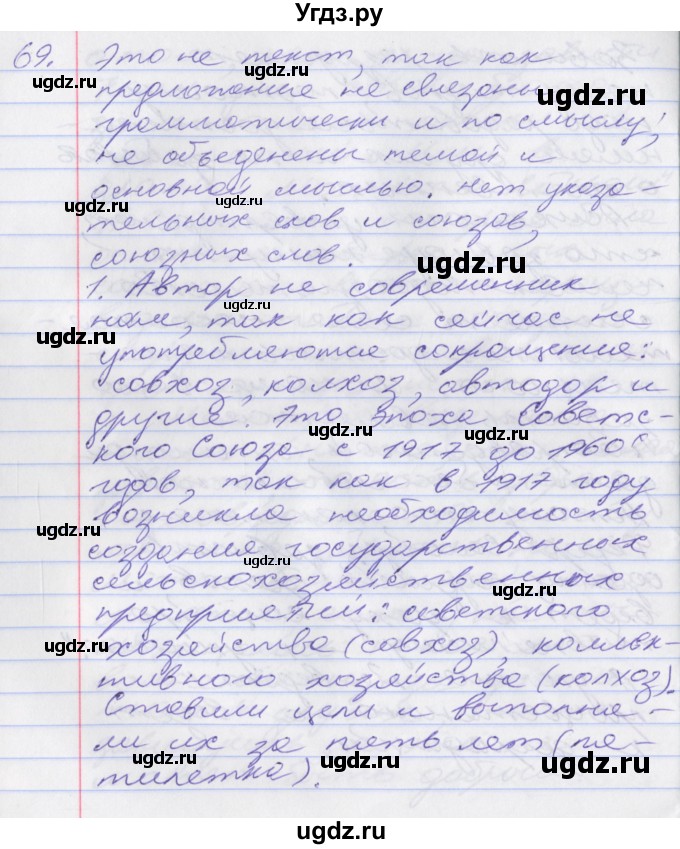 Угдз.ру
69. Это не текст, так как
предложение не связаны
грамматически и по смыслу,
не объеденены темой и
основной мыслью. нет указа-
тельных слов и союзов,
союзных слов.
1. Автор не современник
нам, так как сейчас не
употребляются сокращения:
совхоз, колхоз, автодор и
другие. Это эпоха Советс-
кого Союза с 1917 до 1960х
годов, так как в 1917 году
возникла необходимость
создания государственных
сельскохозяйственных
предприятий: советского
хозяйства (совхоз), коллек-
тивного хозяйства (колхоз).
Ставили цели и выполня-
ли их за пять лет (пя-
тилетка).
ugdz.ru